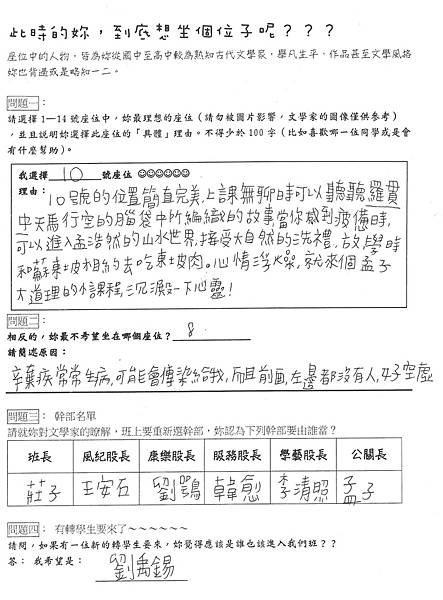 此時的妳，到底想坐個位子呢？？？
座位中的人物，皆為妳從國中至高中較為熟知古代文學家，舉凡生平、作品甚至文學風格
妳也背過或是略知一二。
問題一：
請選擇 1－14 號座位中，妳最理想的座位（請勿被圖片影響，文學家的圖像僅供參考）
，並且說明妳選擇此座位的「具體」理由。不得少於 100 字（比如喜歡哪一位同學或是會
有什麼幫助）。
我選擇 10 號座位 ☺☺☺☺☺☺
理由：10號的位置簡直完美，上課無聊時可以聽聽羅貫
中天馬行空的腦袋中所編織的故事，當你感到疲憊時，
可以進入孟浩然的山水世界，接受大自然的洗禮，放學時
和蘇東坡相約去吃東坡肉。心情浮燥，就來個孟子
大道理的小課程，沉澱一下心靈！
問題二：
相反的，妳最不希望坐在哪個座位？ 8
請簡述原因：
辛棄疾常常生病，可能會傳染給我，而且前面，左邊都沒有人，好空虛
問題三： 幹部名單
請就妳對文學家的瞭解，班上要重新選幹部，妳認為下列幹部要由誰當？
班長 風紀股長 康樂股長 服務股長 學藝股長 公關長
莊子 王安石 劉鶚 韓愈 李清照 孟子
問題四： 有轉學生要來了～～～～～～
請問，如果有一位新的轉學生要來，妳覺得應該是誰也該進入我們班？？
答： 我希望是： 劉禹錫